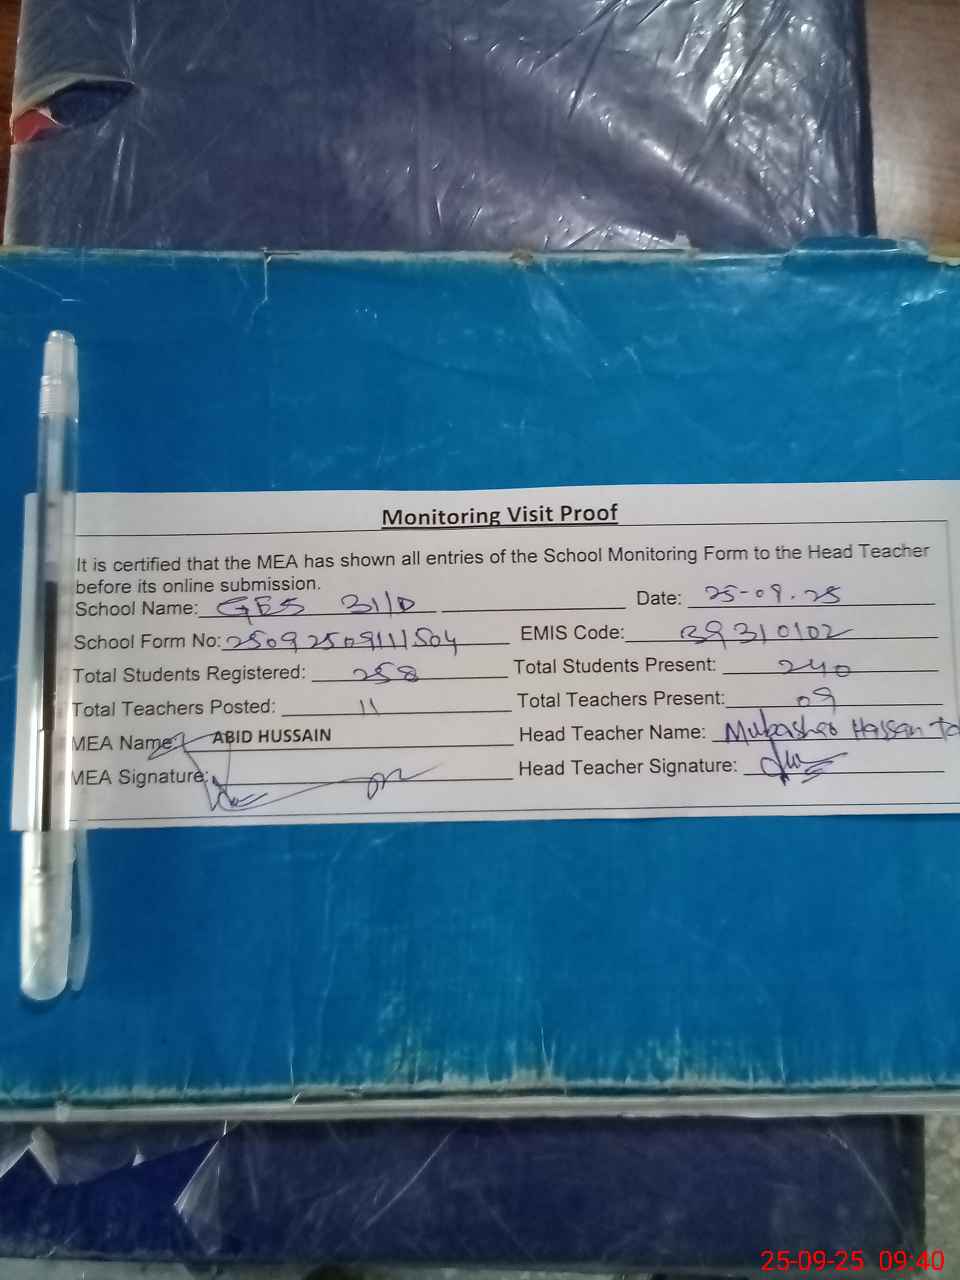 Monitoring Visit Proof
It is certified that the MEA has shown all entries of the School Monitoring Form to the Head Teacher
before its online submission.
School Name: GES 31/D Date: 25-09-25
School Form No: 25092509111504 EMIS Code: 39310102
Total Students Registered: 258 Total Students Present: 240
Total Teachers Posted: 11 Total Teachers Present: 09
MEA Name: ABID HUSSAIN Head Teacher Name: Mubashar Hassan
MEA Signature: Head Teacher Signature:
25-09-25 09:40